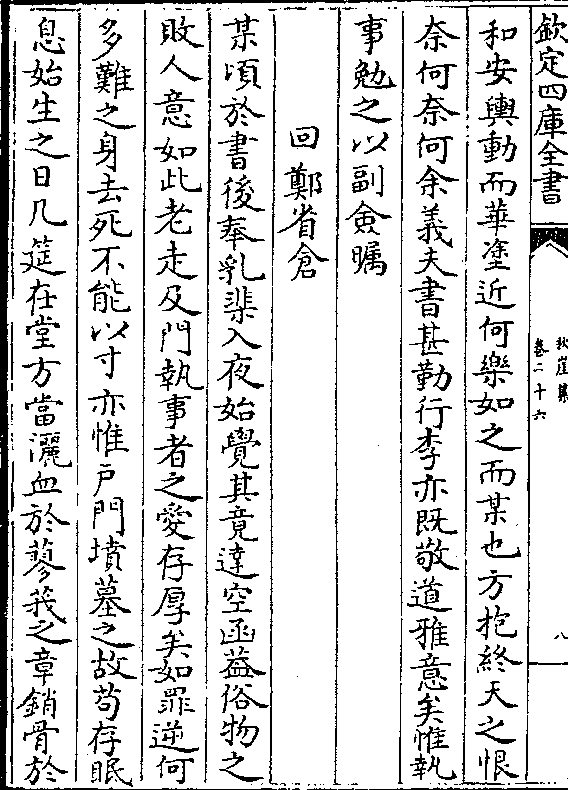 欽定四庫全書
秋崖集
卷二十六
八
和安輿動而華塗近何樂如之而某也方抱終天之恨
奈何奈何余義夫書甚勤行李亦既敬道雅意矣惟執
事勉之以副僉矚
回鄭省倉
某頃於書後奉乳柑入夜始覺其竟達空函葢俗物之
敗人意如此老走及門執事者之愛存厚矣如罪逆何
多難之身去死不能以寸亦惟戶門墳墓之故苟存眠
息始生之日几筵在堂方當灑血於蓼莪之章銷骨於